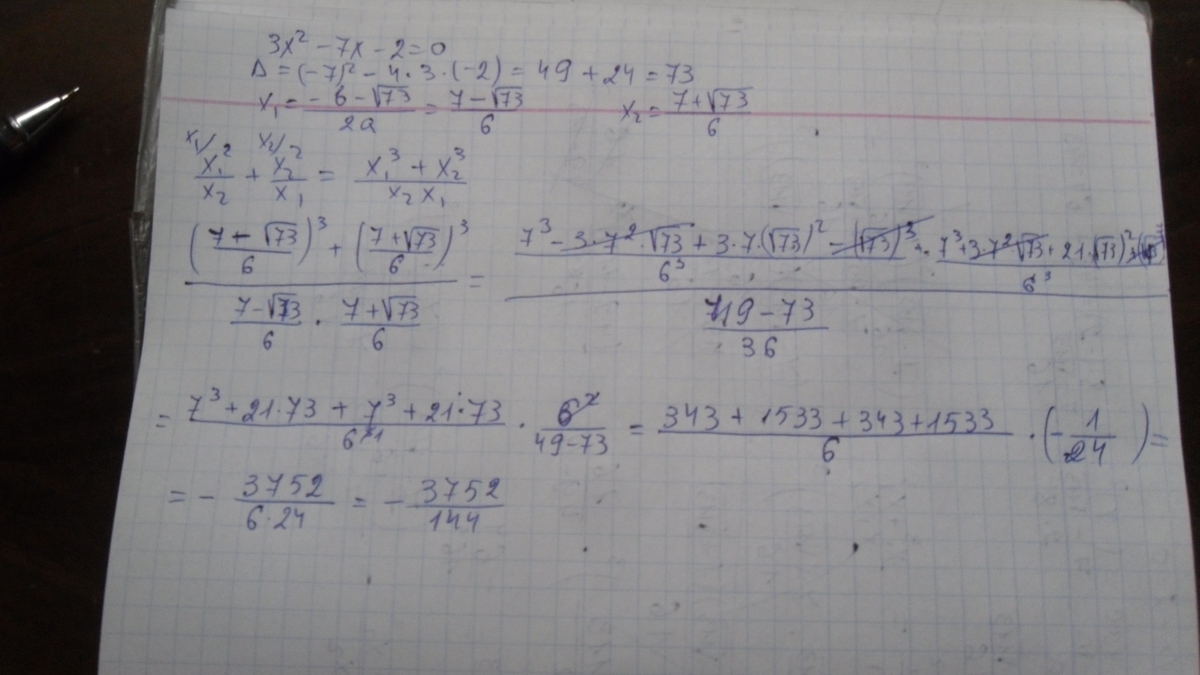 3x² - 7x - 2 = 0
Δ = (-7)² - 4·3·(-2) = 49 + 24 = 73
x₁ = (-b - √73)/(2a) = (7 - √73)/6    x₂ = (7 + √73)/6
x₁/ x₂/
x₁²/x₂ + x₂²/x₁ = (x₁³ + x₂³)/(x₂x₁)
(((7 - √73)/6)³ + ((7 + √73)/6)³)/((7 - √73)/6 · (7 + √73)/6) = ((7³ - 3·7²·√73 + 3·7·(√73)² - (√73)³)/6³ + (7³ + 3·7²√73 + 21·(√73)² + (√73)³)/6³)/((49 - 73)/36)
= (7³ + 21·73 + 7³ + 21·73)/6³¹ · 6²/(49 - 73) = (343 + 1533 + 343 + 1533)/6 · (-1/24) =
= - 3752/(6·24) = - 3752/144